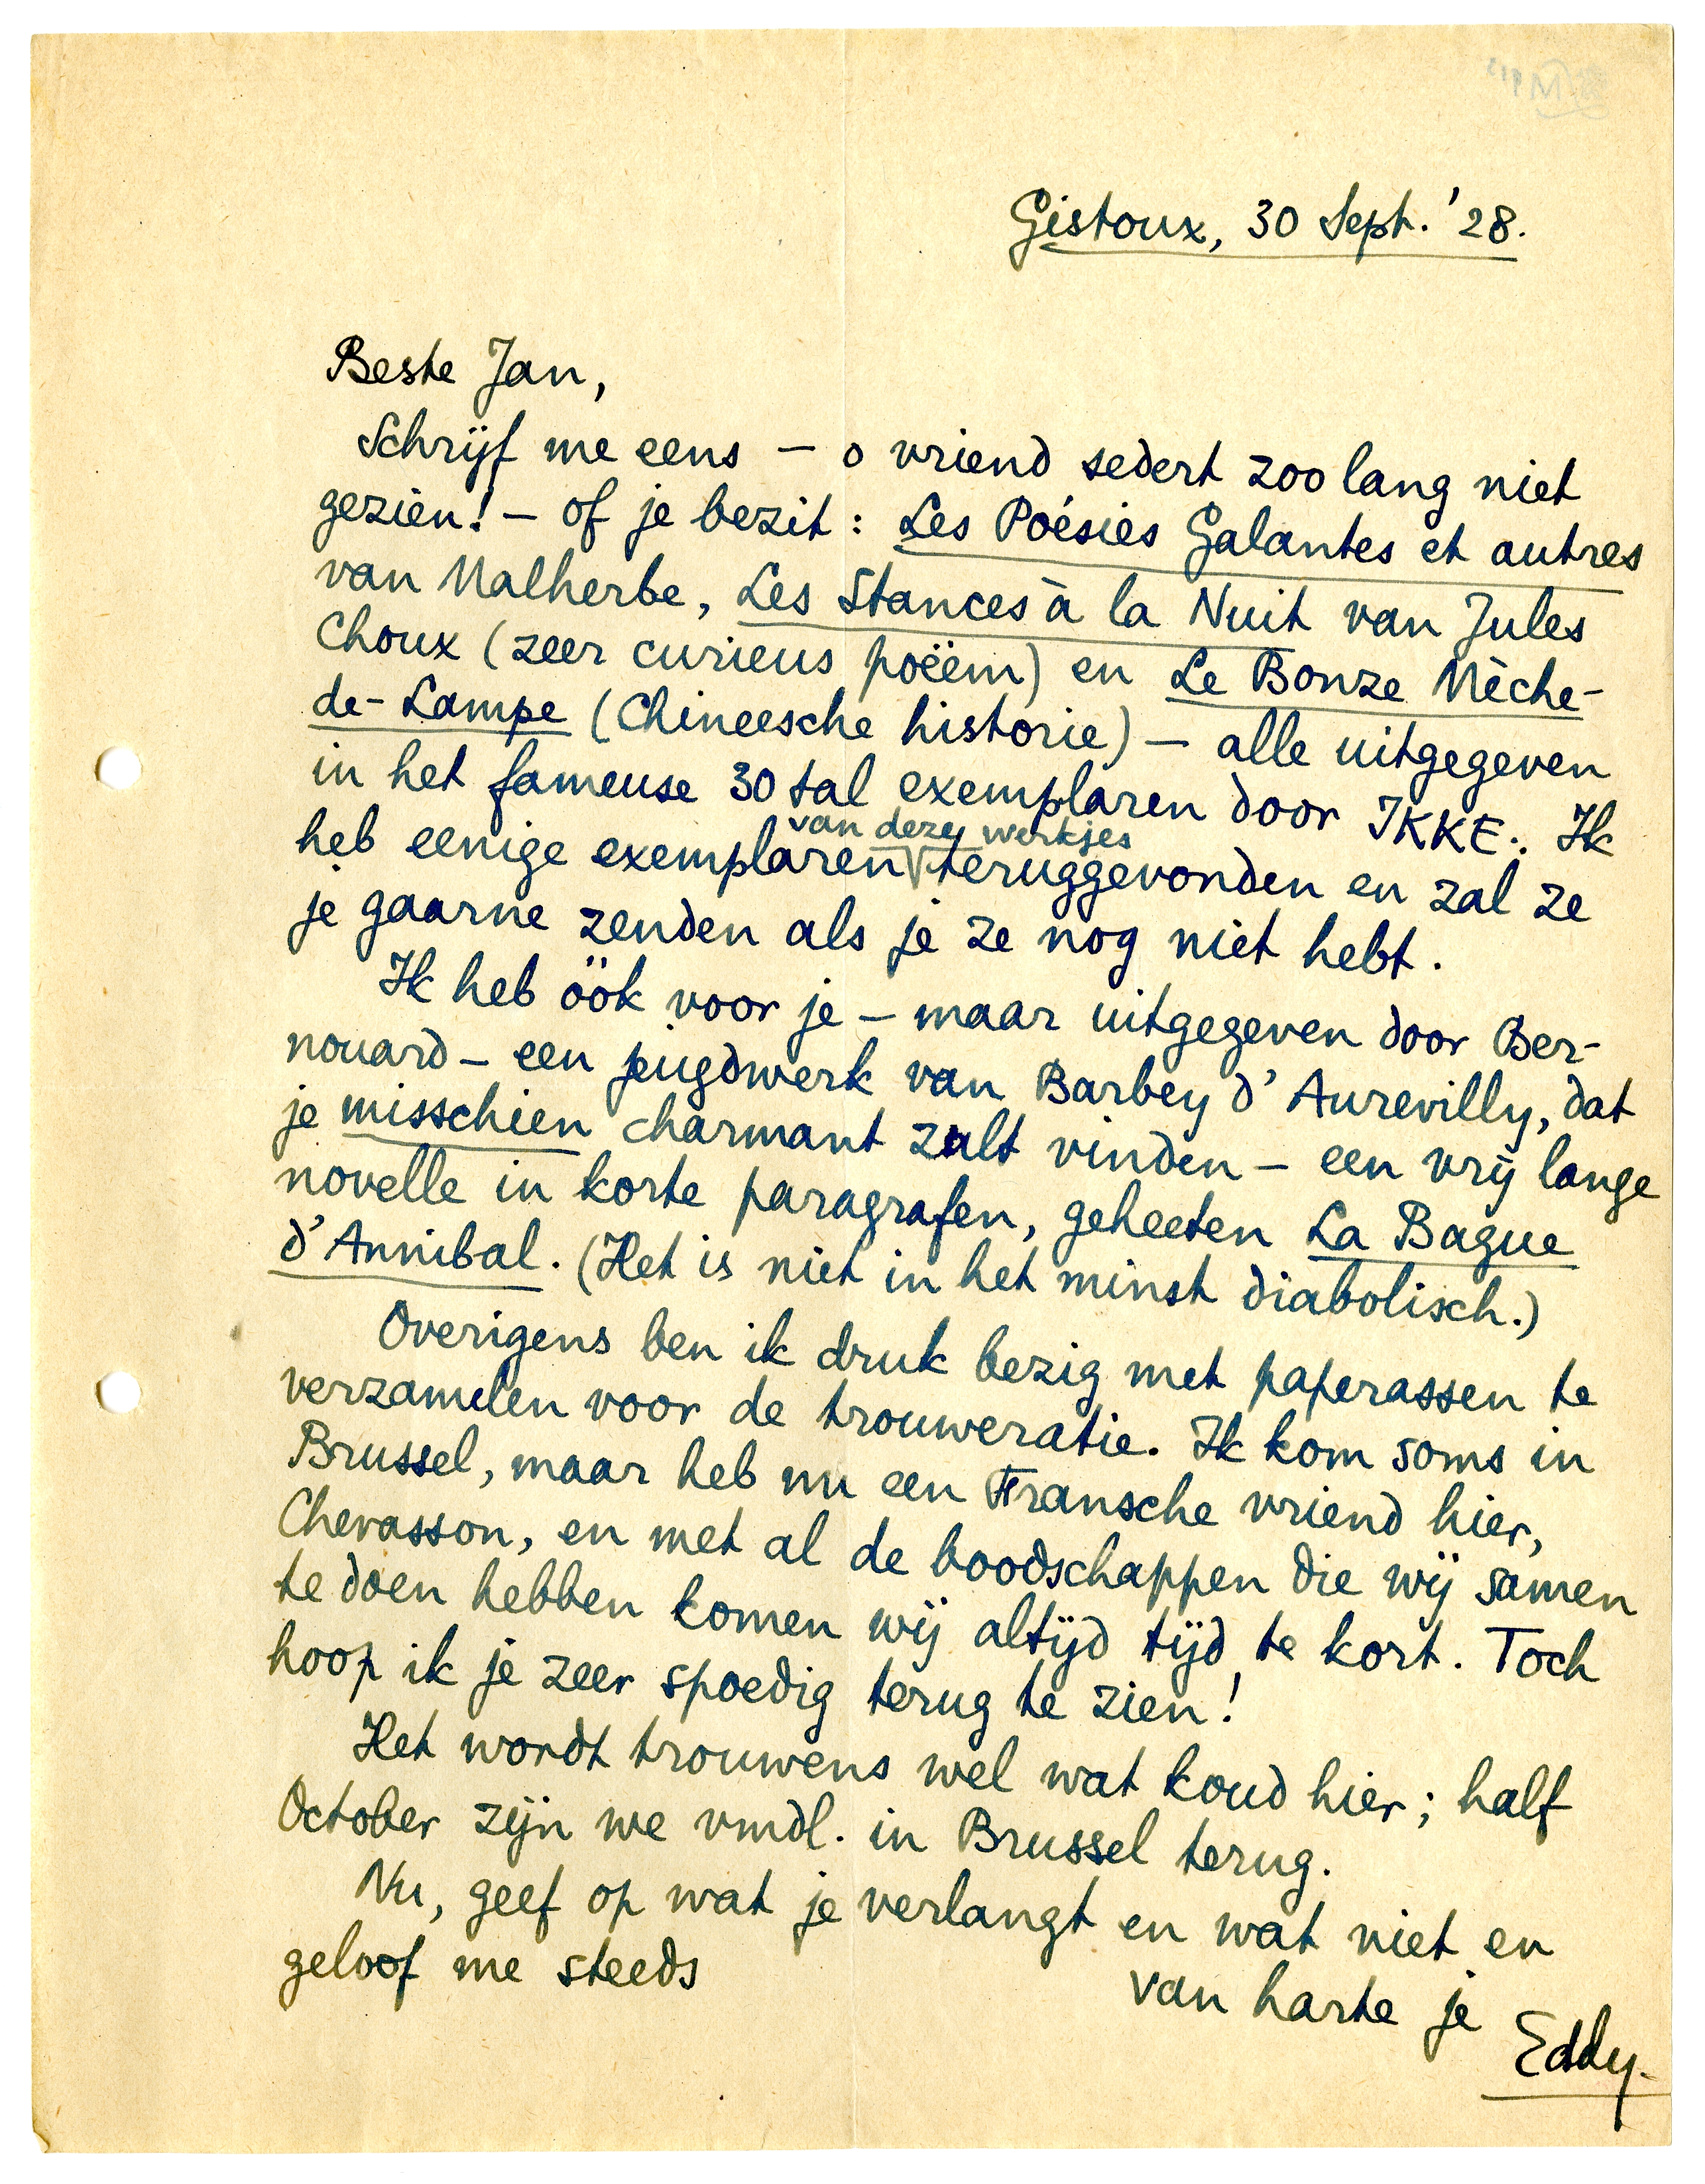 Gistoux, 30 Sept. '28.
Beste Jan,
Schrijf me eens — o vriend sedert zoo lang niet
gezien! — of je bezit: Les Poésies Galantes et autres
van Malherbe, Les Stances à la Nuit van Jules
Choux (zeer curieus poëem) en Le Bonze Mèche-
de-Lampe (Chineesche historie) — alle uitgegeven
in het fameuse 30 tal exemplaren door IKKE. Ik
van deze werkjes
heb eenige exemplaren teruggevonden en zal ze
je gaarne zenden als je ze nog niet hebt.
Ik heb öök voor je — maar uitgegeven door Ber-
nouard — een jeugdwerk van Barbey d'Aurevilly, dat
je misschien charmant zult vinden — een vrij lange
novelle in korte paragrafen, geheeten La Bague
d'Annibal. (Het is niet in het minst diabolisch.)
Overigens ben ik druk bezig met paperassen te
verzamelen voor de trouweratie. Ik kom soms in
Brussel, maar heb nu een Fransche vriend hier,
Chevasson, en met al de boodschappen die wij samen
te doen hebben komen wij altijd tijd te kort. Toch
hoop ik je zeer spoedig terug te zien!
Het wordt trouwens wel wat koud hier; half
October zijn we vmdl. in Brussel terug.
Nu, geef op wat je verlangt en wat niet en
geloof me steeds
van harte je
Eddy.